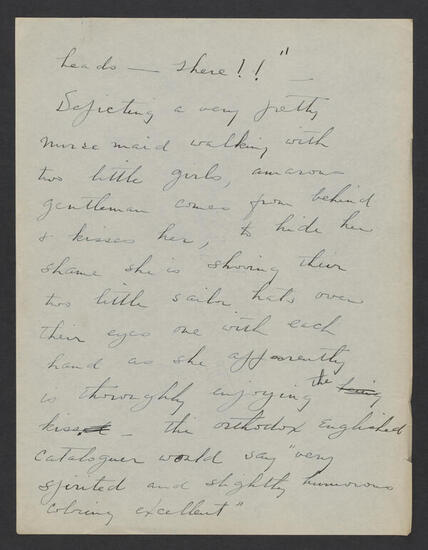 heads — there!!" —
Depicting a very pretty
nurse maid walking with
two little girls, amorous
gentleman comes from behind
& kisses her, to hide her
shame she is shoving their
two little sailor hats over
their eyes one with each
hand as she apparently
is thoroughly enjoying the being
kissed — the orthodox Englished
cataloguer would say "very
spirited and slightly humorous
coloring excellent"